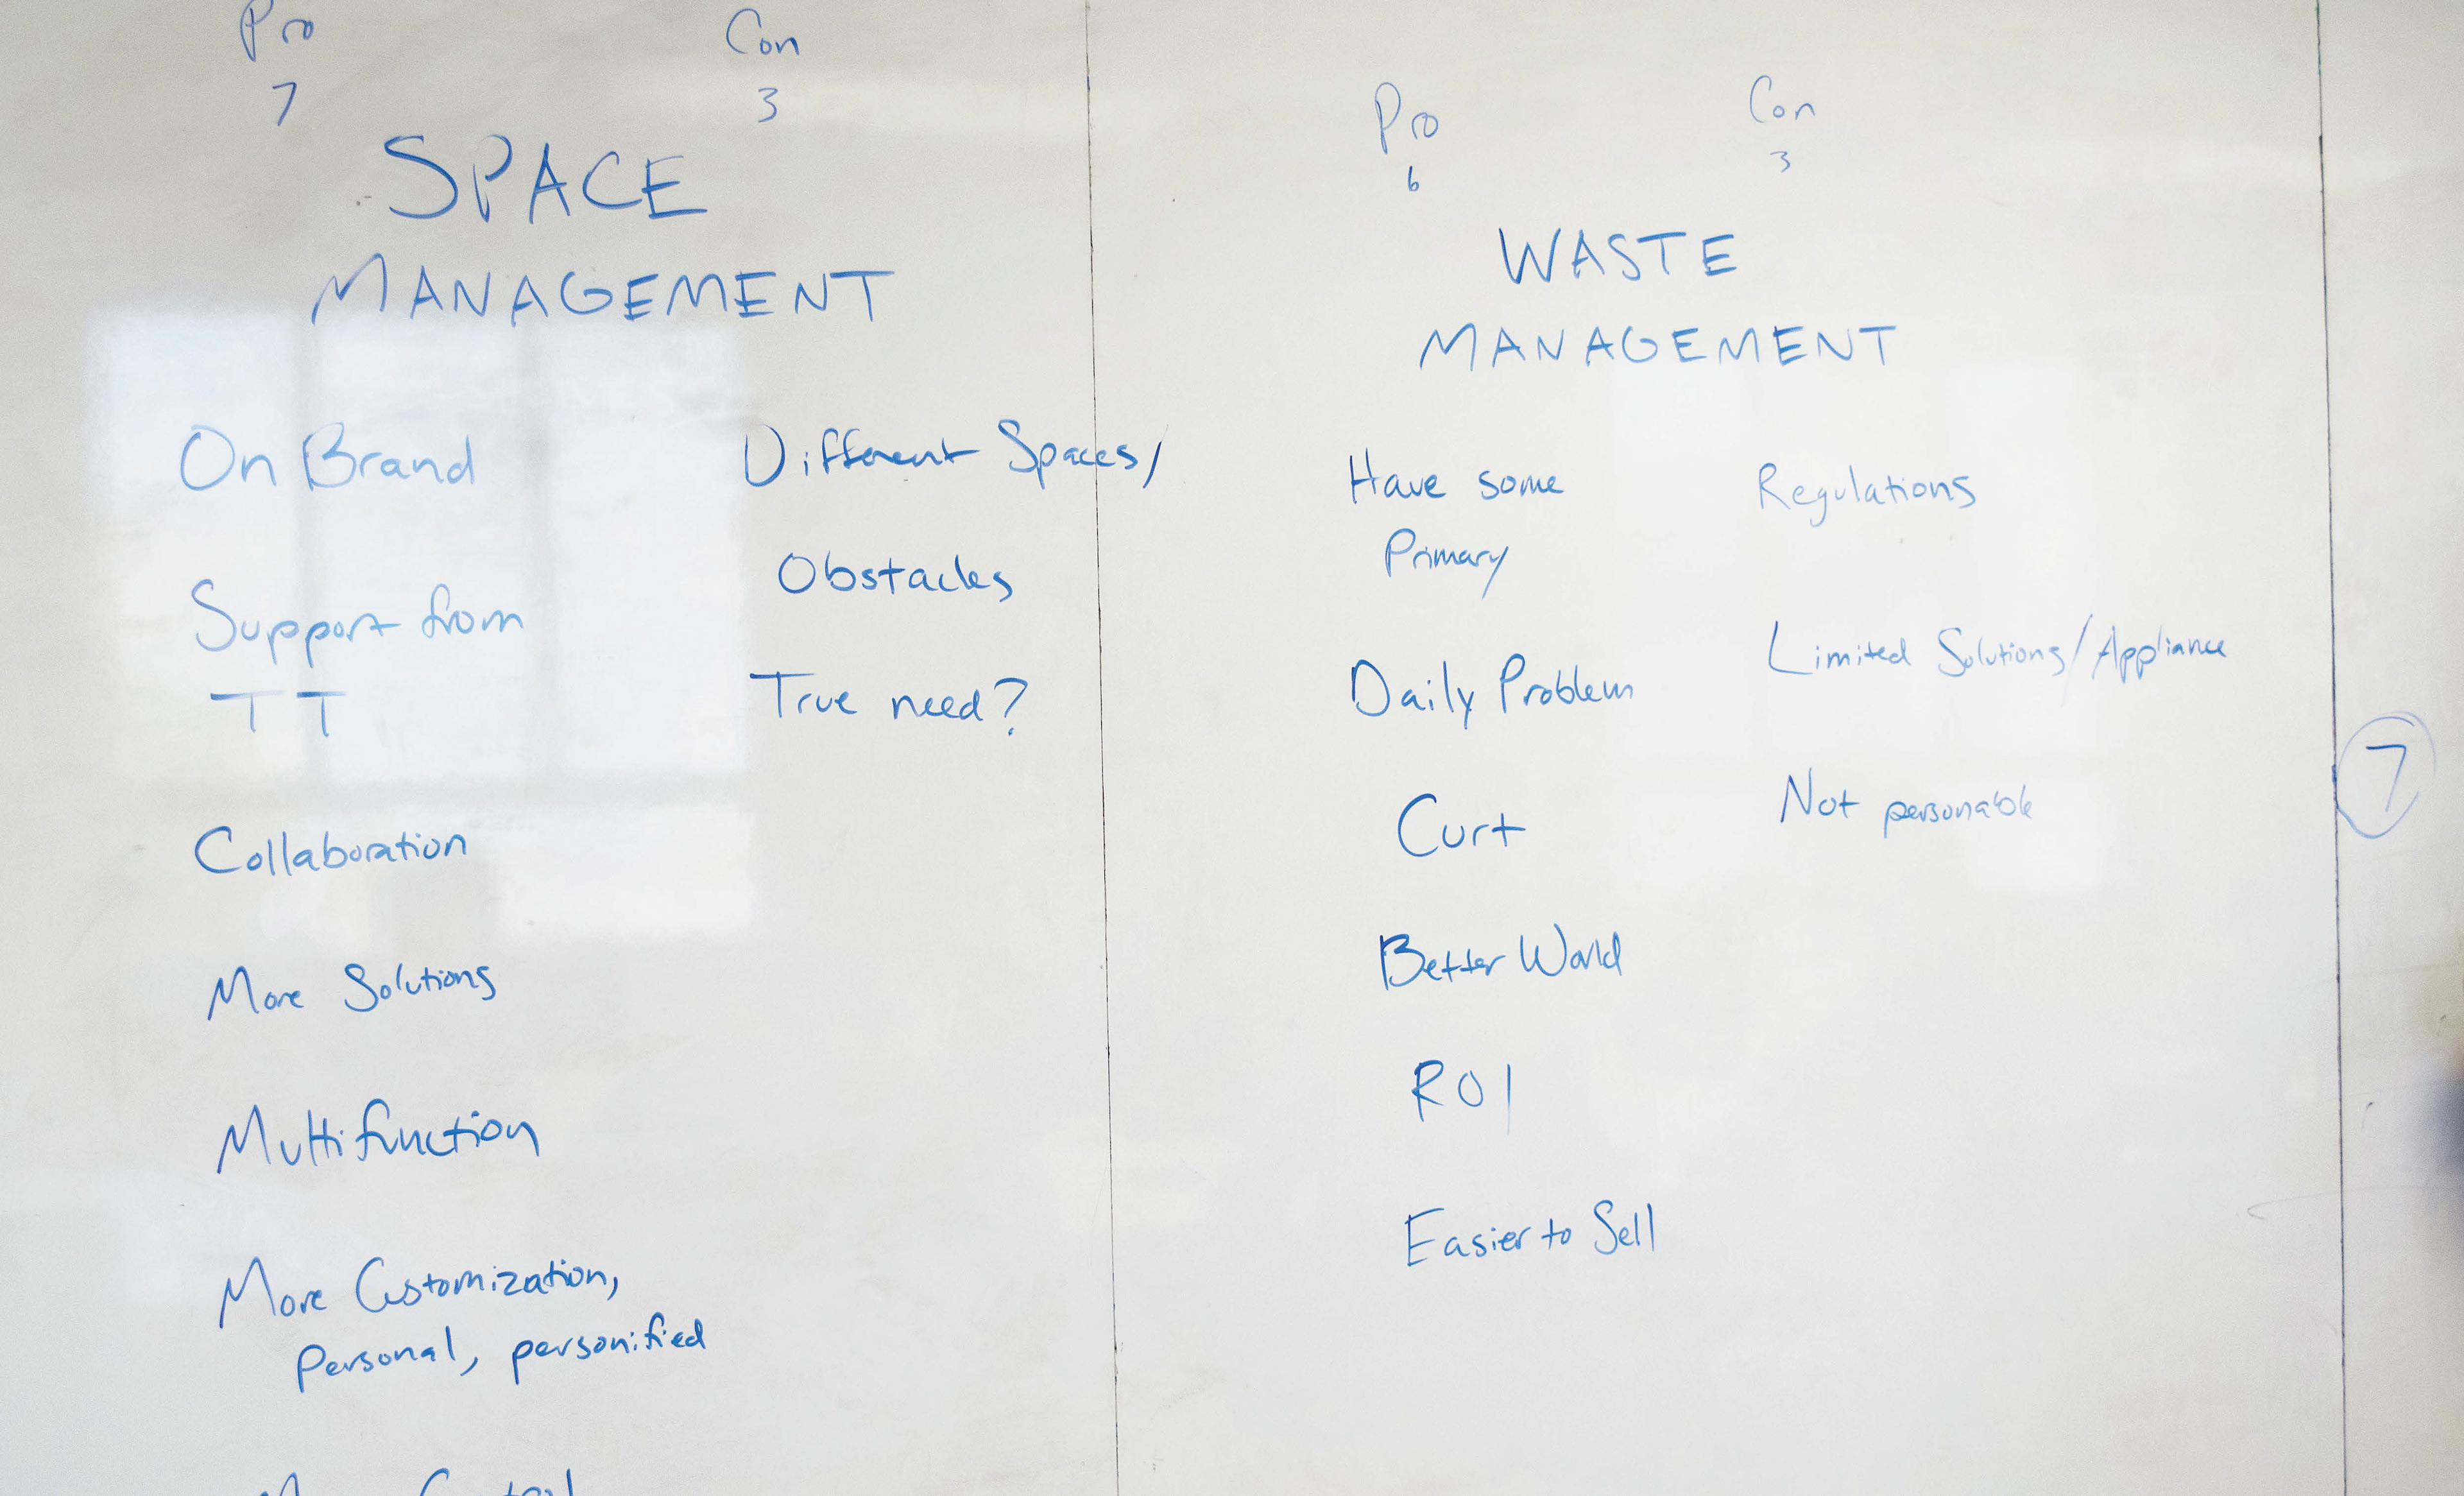 Pro Con
7 3
SPACE
MANAGEMENT
On Brand
Support from
TT
Collaboration
More Solutions
Multifunction
More Customization,
Personal, personified
More Control
Different Spaces/
Obstacles
True need?
Pro Con
6 3
WASTE
MANAGEMENT
Have some
Primary
Daily Problem
Curt
Better World
ROI
Easier to Sell
Regulations
Limited Solutions/Appliance
Not personable
7